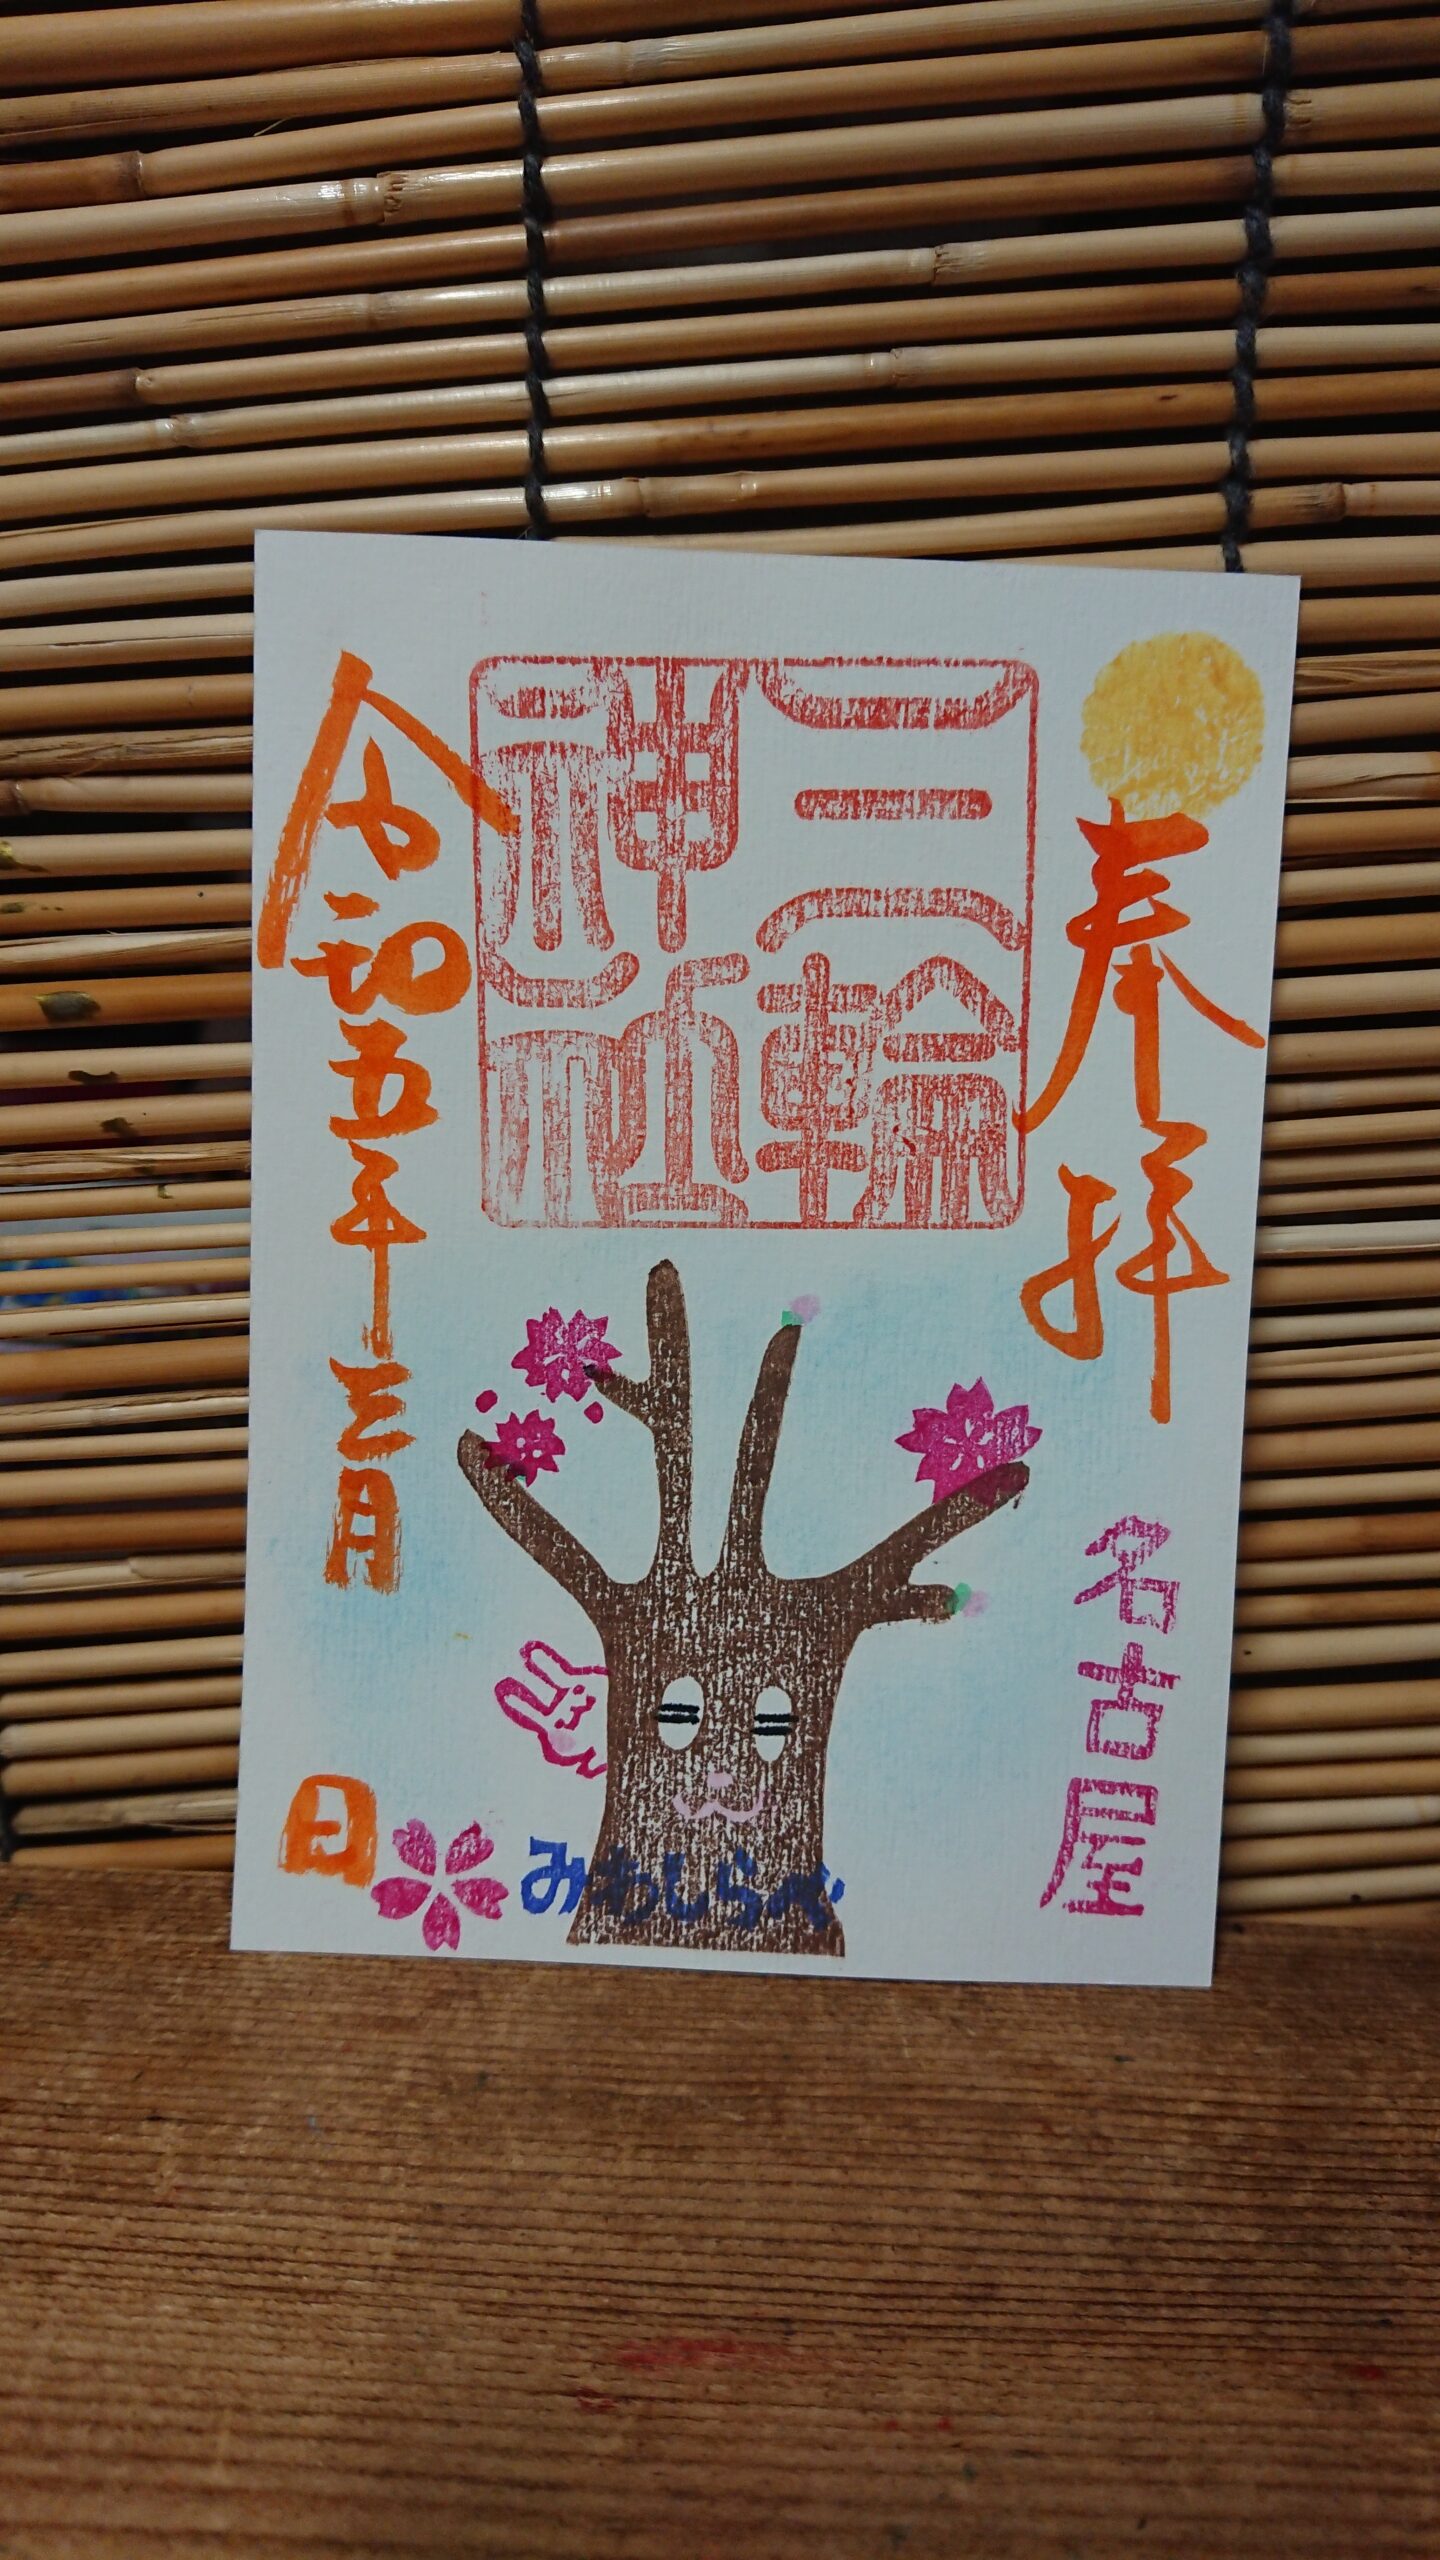 奉拝
名古屋
三輪
神社
令和五年三月
日
みわしらべ